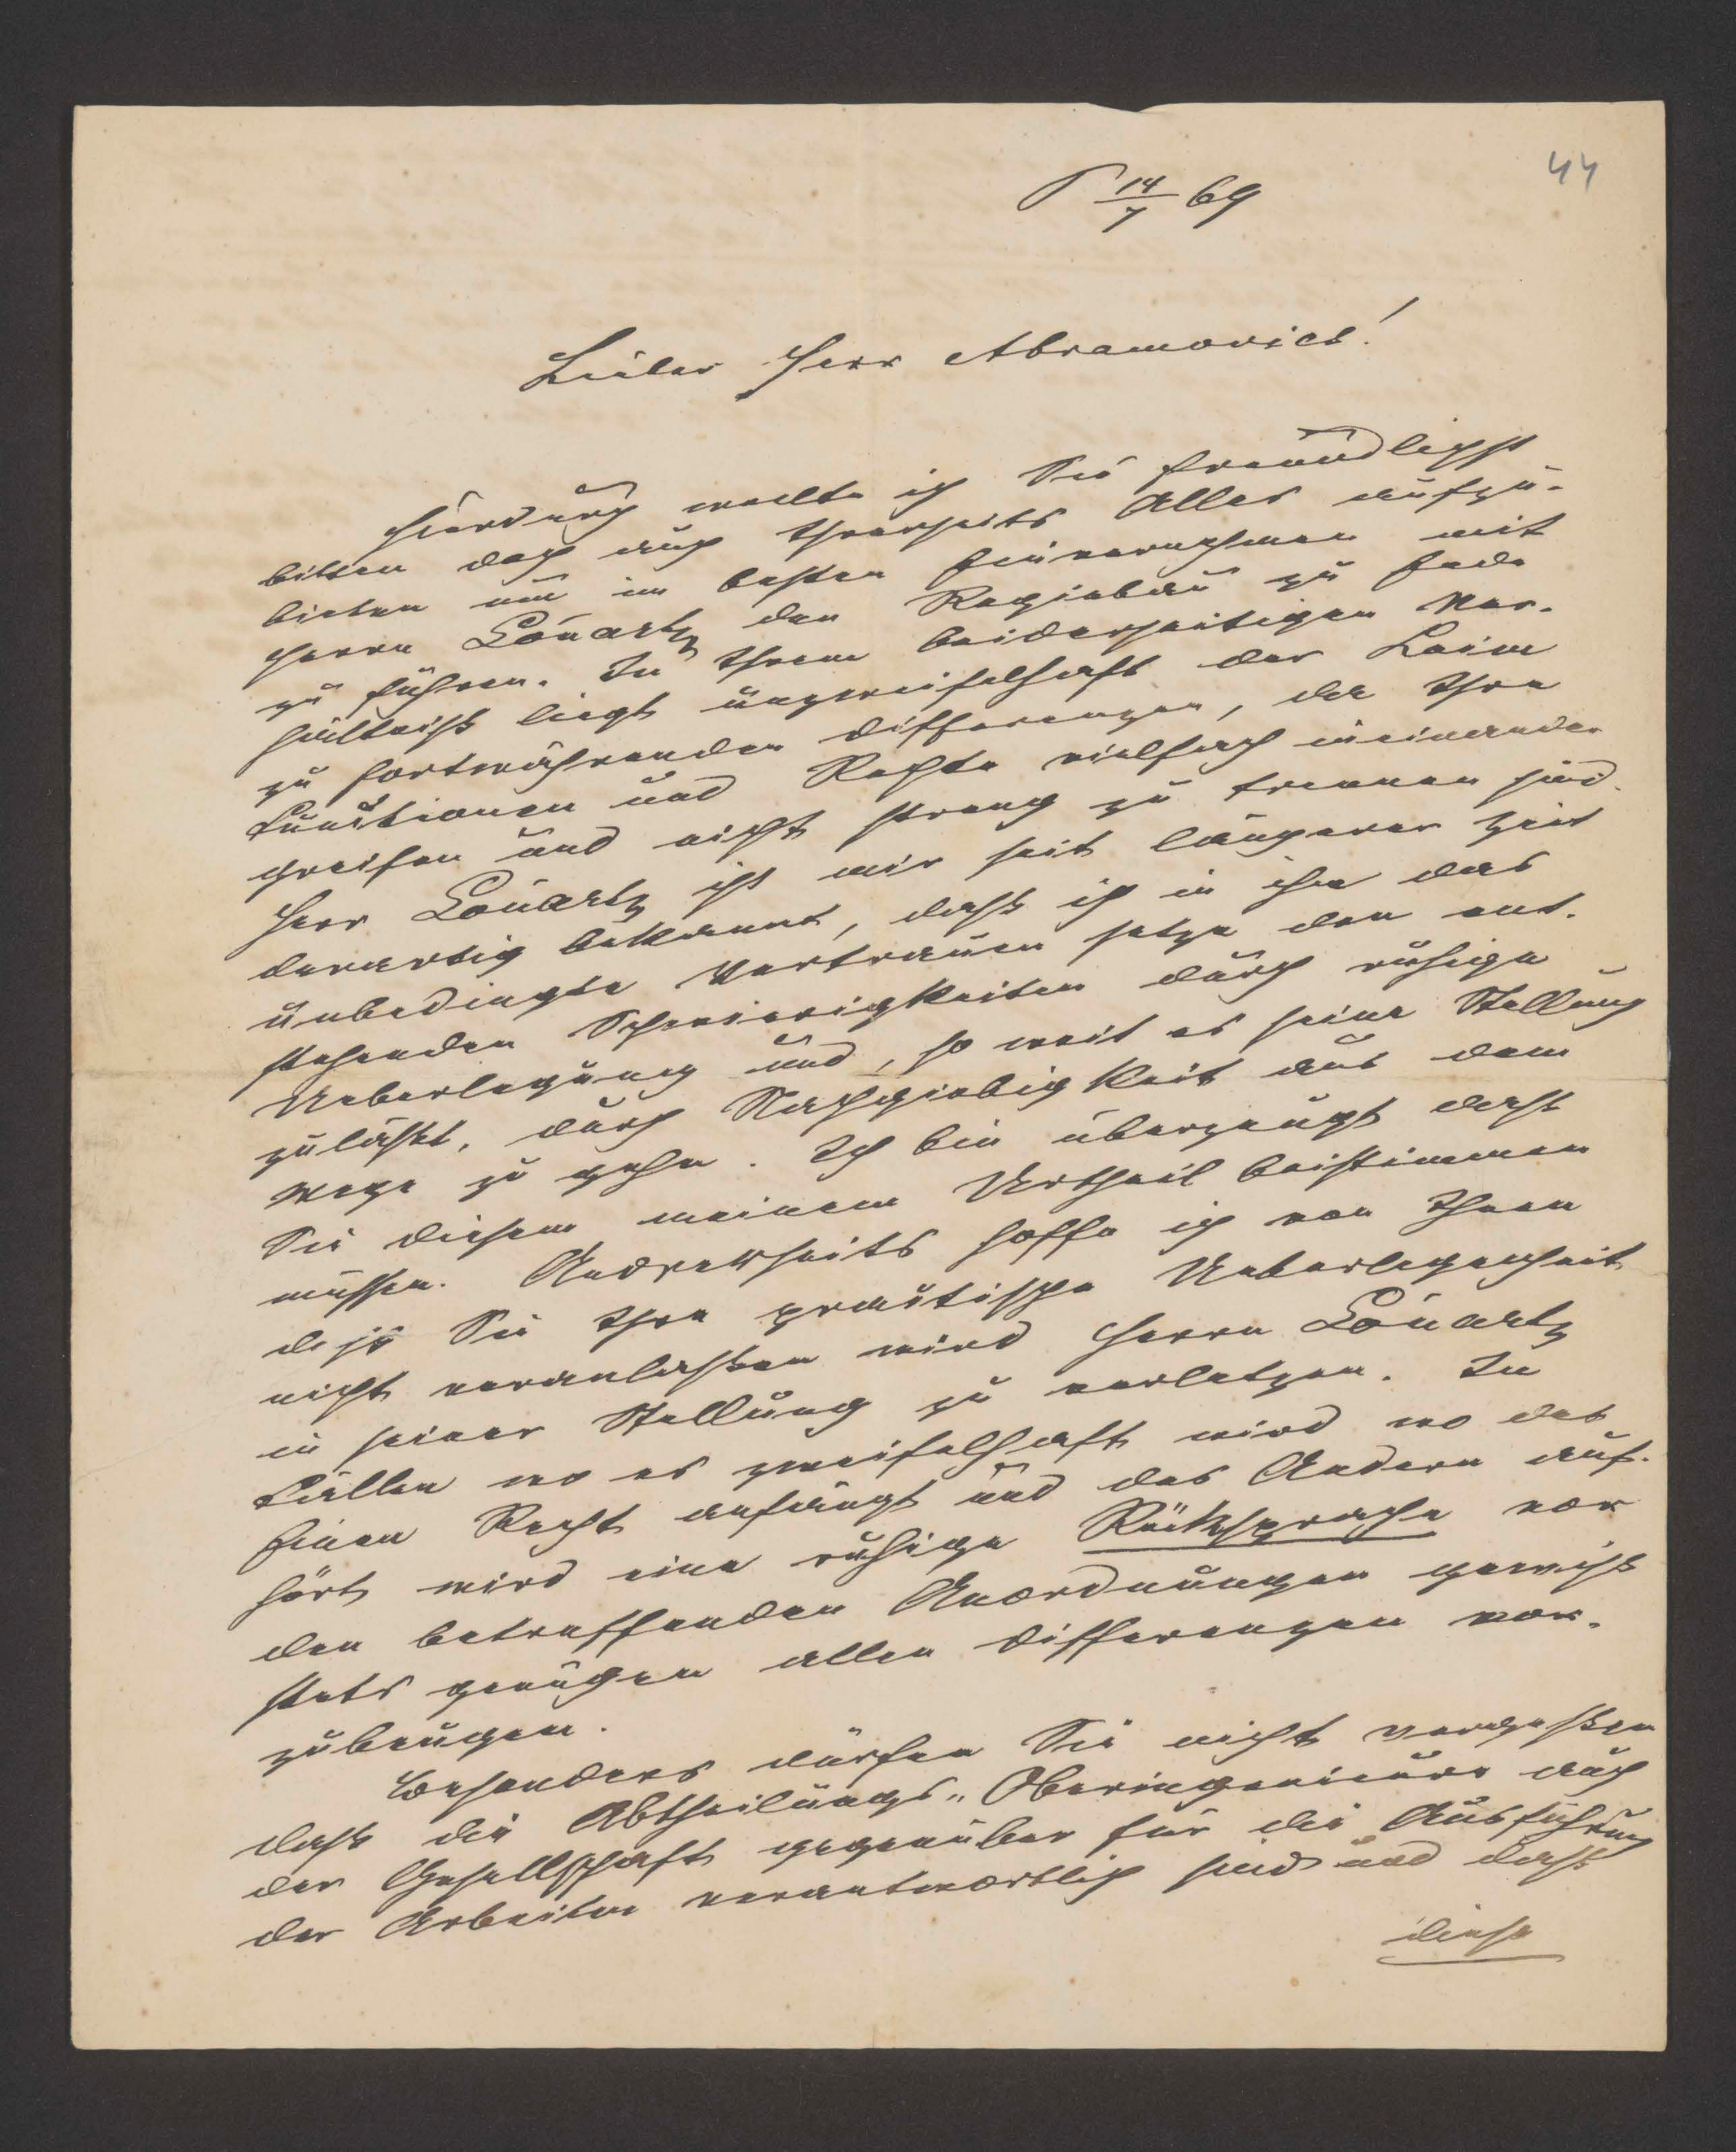 44
P 14/7 69
Lieber Herr Abramovicz!
Hierdurch wollte ich Sie freundlichst
bitten doch auch Ihrerseits Alles aufzu-
bieten um im besten Einvernehmen mit
Herrn Louartz den Regiebau zu Ende
zu führen. In Ihrem beiderseitigen Ver-
hältniß liegt unzweifelhaft der Keim
zu fortwährenden Differenzen, da Ihre
Functionen und Rechte vielfach ineinander
greifen und nicht streng zu trennen sind.
Herr Louartz ist mir seit längerer Zeit
derartig bekannt, daß ich in ihn das
unbedingte Vertrauen setze den ent-
stehenden Schwierigkeiten durch ruhige
Ueberlegung und, so weit es seine Stellung
zuläßt, durch Nachgiebigkeit aus dem
Wege zu gehn. Ich bin überzeugt daß
Sie diesem meinem Urtheil beistimmen
müssen. Andrerseits hoffe ich von Ihnen
daß Sie Ihre practische Ueberlegenheit
nicht veranlaßen wird Herrn Louartz
in seiner Stellung zu verletzen. In
Fällen wo es zweifelhaft wird wo des
Einen Recht anfängt und das Andern auf-
hört wird eine ruhige Rücksprache vor
den betreffenden Anordnungen gewiß
stets genügen allen Differenzen vor-
zubeugen.
Besonders dürfen Sie nicht vergeßen
daß die Abtheilungs-Oberingenieure auch
der Gesellschaft gegenüber für die Ausführung
der Arbeiten verantwortlich sind und daß
diese